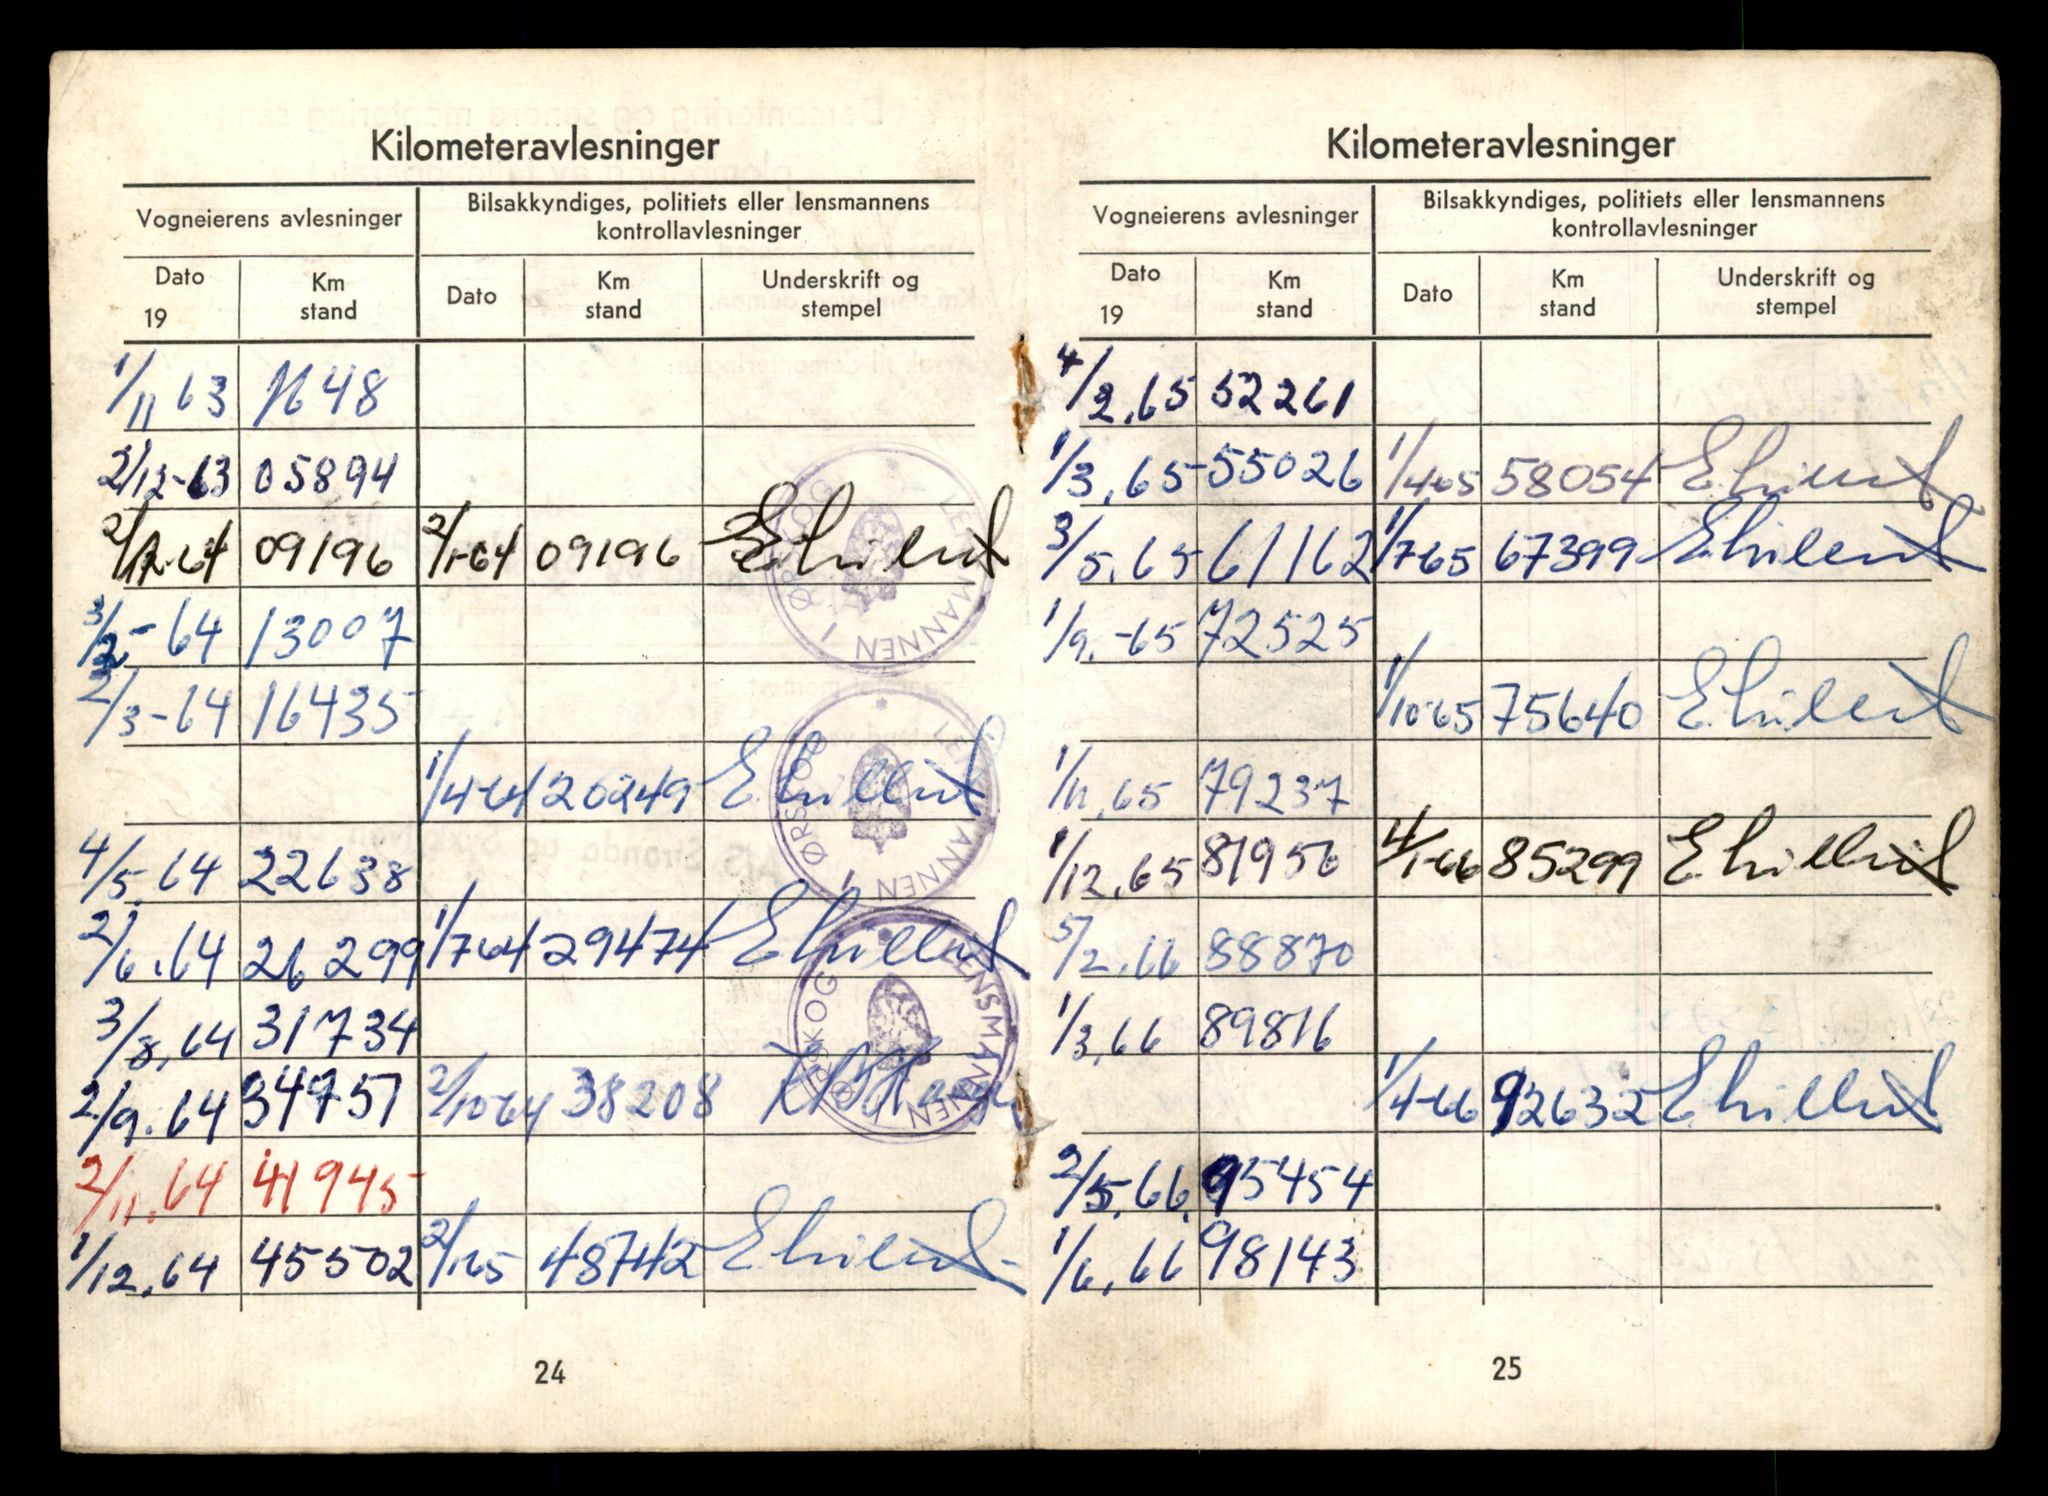 Kilometeravlesninger
Vogneierens avlesninger
Bilsakkyndiges, politiets eller lensmannens
kontrollavlesninger
Dato
19
Km
stand
Dato
Km
stand
Underskrift og
stempel
1/11 63
2/12-63 05894
2/1-64 09196 2/1-64 09196
3/2-64 13007
2/3-64 16435
1/4-64 20249
4/5.64 22638
2/6.64 26299 1/7-64 29474
3/8.64 31734
2/9.64 34757 2/10-64 38208
2/11.64 41945
1/12.64 45502 2/1-65 48742
LENSMANNEN I ØRSKOG
LENSMANNEN I ØRSKOG
LENSMANNEN I ØRSKOG
24
Kilometeravlesninger
Vogneierens avlesninger
Bilsakkyndiges, politiets eller lensmannens
kontrollavlesninger
Dato
19
Km
stand
Dato
Km
stand
Underskrift og
stempel
4/2.65 52261
1/3.65 55026 1/4-65 58054
3/5.65 61162 1/7-65 67399
1/9.-65 72525
1/10-65 75640
1/11.65 79237
1/12.65 81956 4/1-66 85299
5/2.66 88870
1/3.66 89816
1/4-66 92632
2/5.66. 95454
1/6.66 98143
25